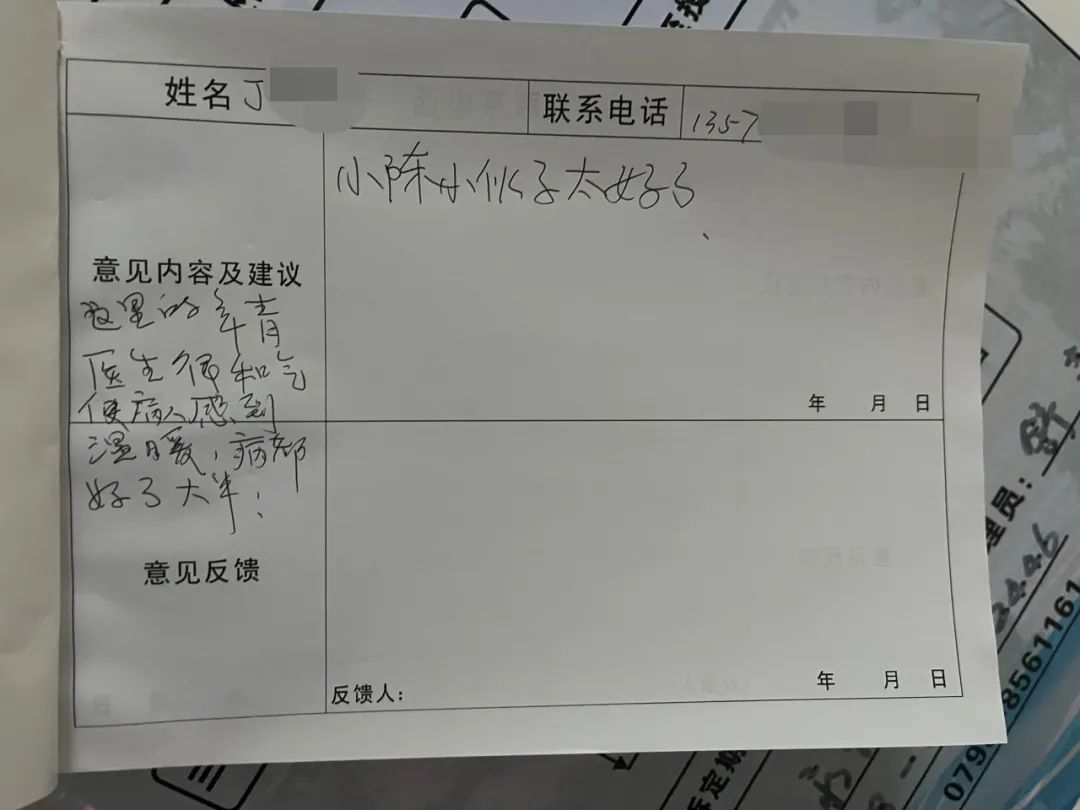 姓名 丁
联系电话 1357
小陈小伙子太好了、
意见内容及建议
这里的年青
医生很和气
使病人感到
温暖，病都
好了大半！
年 月 日
意见反馈
反馈人：
年 月 日
理员：
3446
8561161
079